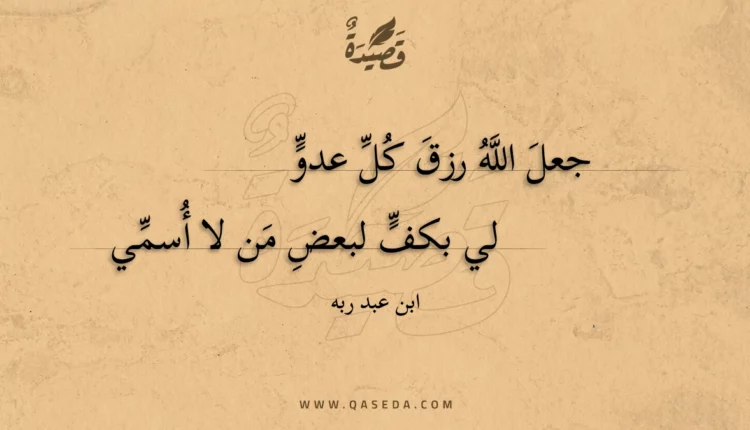 قَصِيْدَةٌ
جعلَ اللَّهُ رزقَ كُلِّ عدوٍّ
لي بكفٍّ لبعضِ مَن لا أُسمِّي
ابن عبد ربه
WWW.QASEDA.COM